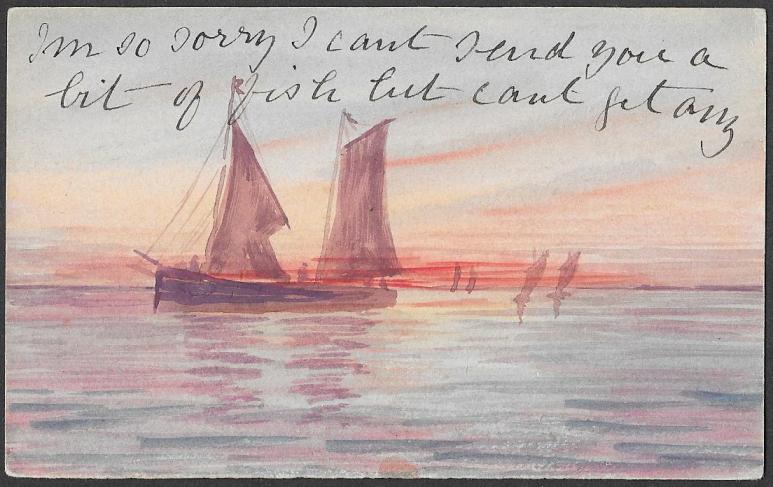 Im so sorry I cant send you a
bit of fish but cant get any